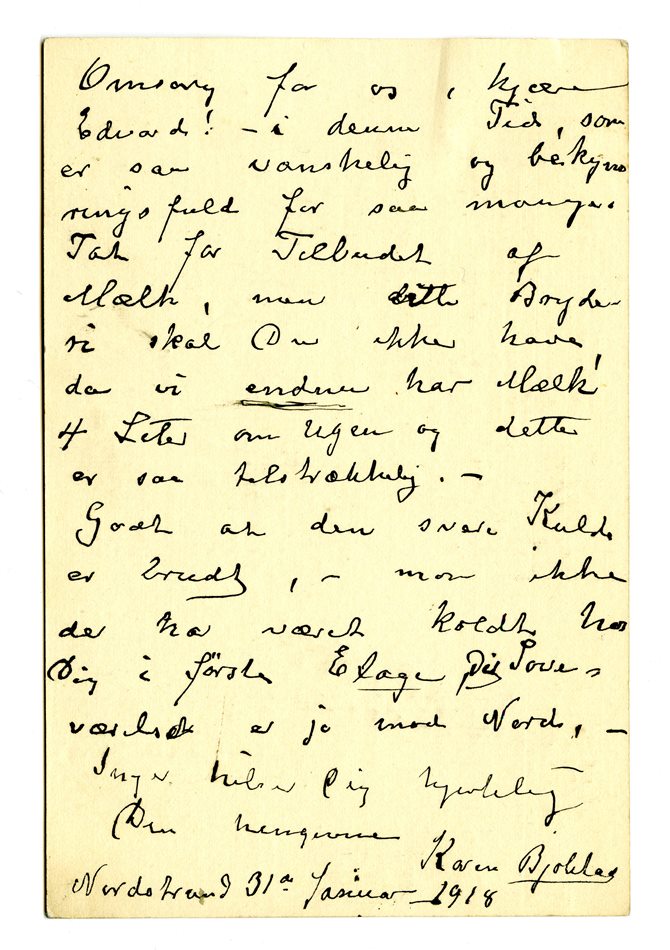 Omsorg for os, kjære
Edvard! – i denne Tid, som
er saa vanskelig og bekym
ringsfuld for saa mange.
Tak for Tilbudet af
Mælk, men dette Bryde-
ri skal Du ikke have,
da vi endnu har Mælk
4 Liter om Ugen og dette
er saa tilstrækkelig. –
Godt at den svære Kulde
er brudt, – mon ikke
der har været koldt hos
Dig i første Etage, Dit Sove-
værelset er jo mod Nord, –
Inger hilser Dig hjertelig
Din hengivne
Karen Bjølstad
Nordstrand 31te Januar 1918